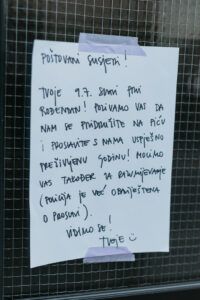 POŠTOVANI SUSJEDI!
TVOJE 9.7. SLAVI PRVI
ROĐENDAN! POZIVAMO VAS DA
NAM SE PRIDRUŽITE NA PIĆU
I PROSLAVITE S NAMA USPJEŠNO
PREŽIVLJENU GODINU! MOLIMO
VAS TAKOĐER ZA RAZUMIJEVANJE
(POLICIJA JE VEĆ OBAVIJEŠTENA
O PROSLAVI).
VIDIMO SE!
TVOJE